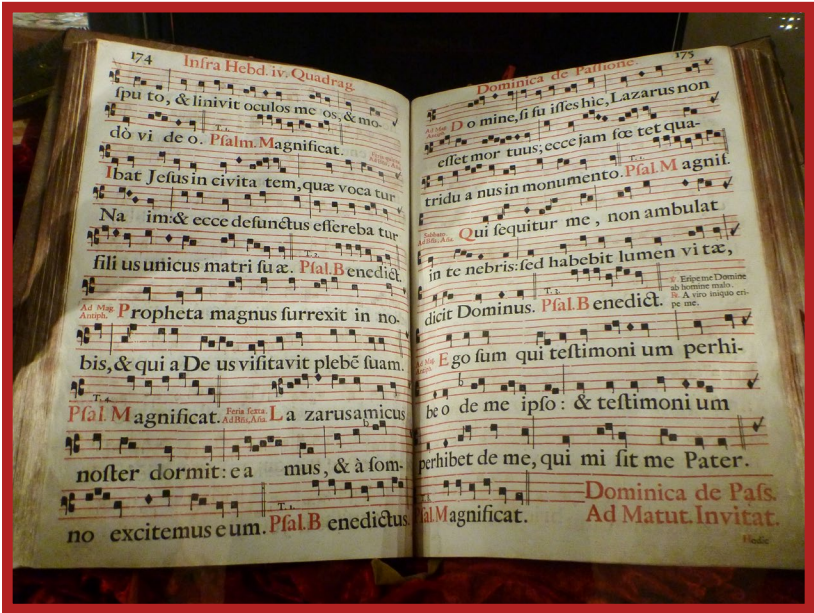 174
Infra Hebd. iv. Quadrag.
spu to, & linivit oculos me os, & mo-
T. 1.
dò vi de o. Psalm. Magnificat.
Ibat Jesus in civita tem, quæ voca tur
Na im: & ecce defunctus effereba tur
T. 2.
fili us unicus matri su æ. Psal. Benedict.
Ad Mag. Antiph. Propheta magnus surrexit in no-
bis, & qui a De us visitavit plebẽ suam.
T. 4.
Psal. Magnificat. Feria sexta. Ad Bñs, Aña. La zarus amicus
noster dormit: e a mus, & à som-
T. 1.
no excitemus e um. Psal. B enedictus.
175
Dominica de Passione.
Ad Mag. Antiph. Domine, si fu isses hìc, Lazarus non
esset mor tuus; ecce jam fœ tet qua-
T. 1.
tridu a nus in monumento. Psal. M agnif.
Sabbato. Ad Bñs, Aña. Qui sequitur me, non ambulat
in te nebris: sed habebit lumen vi tæ,
T. 2.
dicit Dominus. Psal. B enedict.
℣. Eripe me Domine
ab homine malo.
℟. A viro iniquo eri-
pe me.
Ad Mag. Antiph. Ego sum qui testimoni um perhi-
be o de me ipso: & testimoni um
perhibet de me, qui mi sit me Pater.
T. 1.
Psal. Magnificat.
Dominica de Pass.
Ad Matut. Invitat.
Hodie